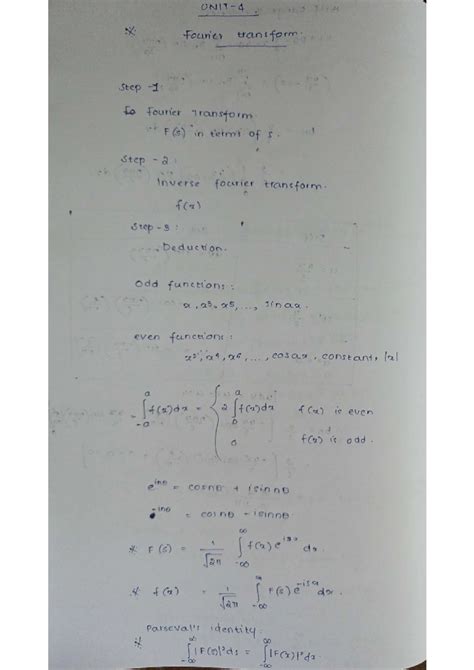 UNIT-4
* Fourier transform.
Step-1:
Fourier Transform
F(s) in terms of s.
Step-2:
Inverse fourier transform.
f(x)
Step-3:
Deduction.
Odd functions:
x, x³, x⁵, ..., sinax.
even functions:
x², x⁴, x⁶, ..., cosax, constant, |x|
∫_{-a}^{a} f(x)dx = { 2∫_{0}^{a} f(x)dx f(x) is even
0 f(x) is odd.
e^{inθ} = cosnθ + isinnθ
e^{-inθ} = cosnθ - isinnθ
* F(s) = 1/√2π ∫_{-∞}^{∞} f(x) e^{isx} dx.
* f(x) = 1/√2π ∫_{-∞}^{∞} F(s) e^{-isx} dx.
Parseval's identity:
* ∫_{-∞}^{∞} |F(s)|² ds = ∫_{-∞}^{∞} |F(x)|² dx.